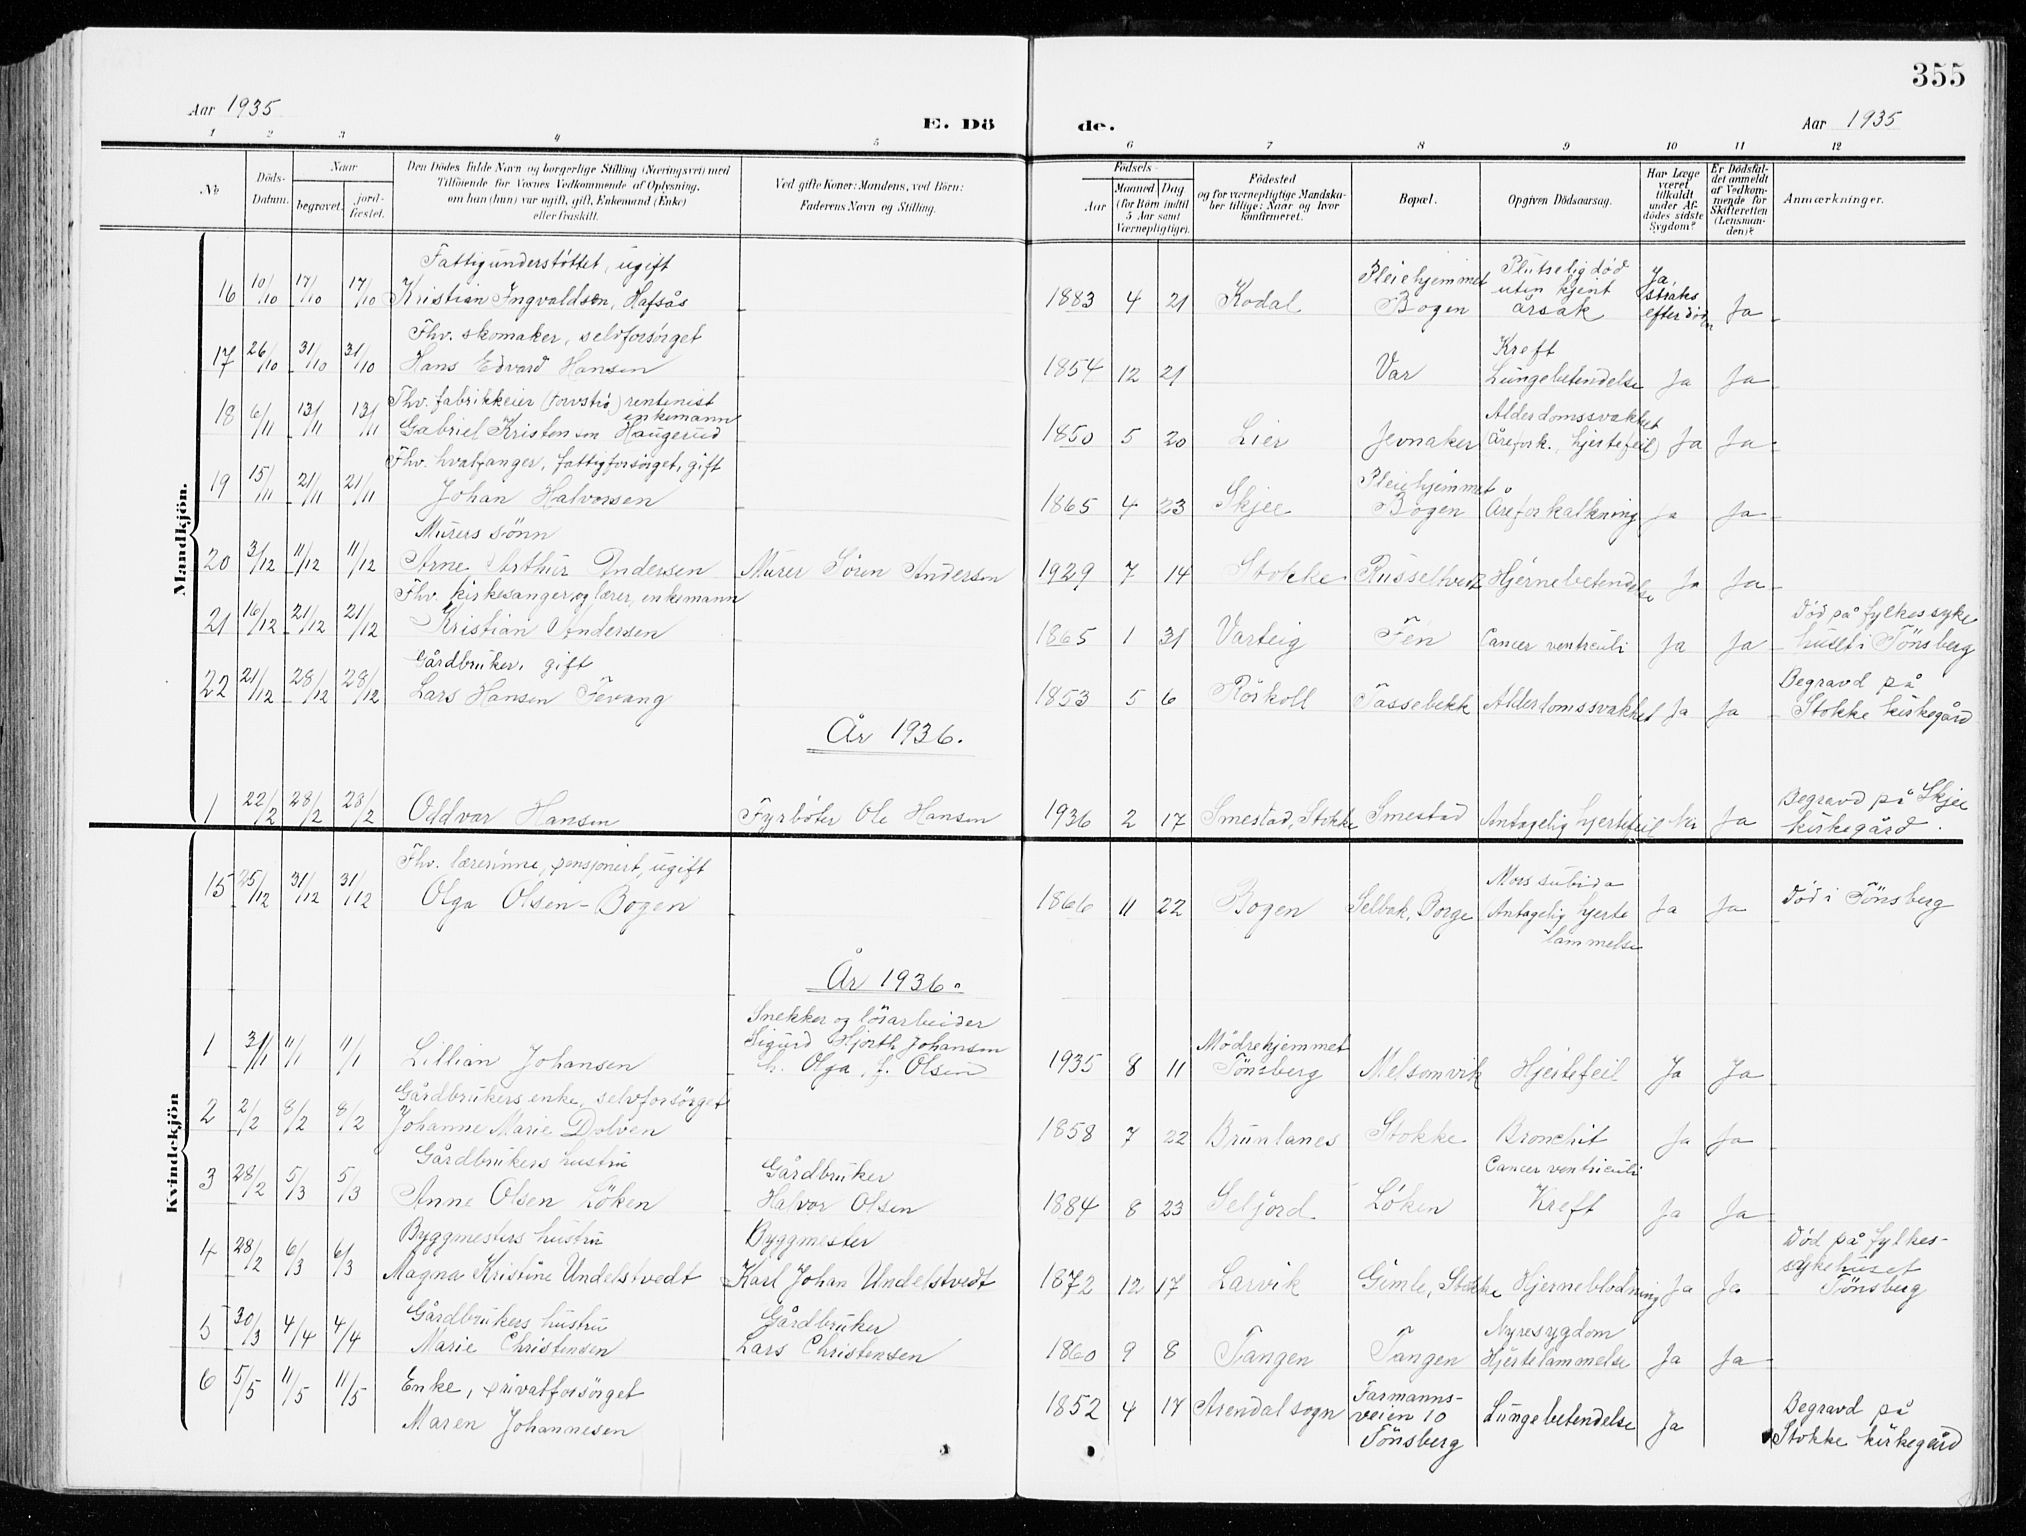 355
Aar 1935
E. Dö
de.
Aar 1935
1 2 3 4 5 6 7 8 9 10 11 12
№
Döds-Datum.
Naar
begravet.
jord-fæstet.
Den Dödes fulde Navn og borgerlige Stilling (Næringsvei) med
Tilföiende for Voxnes Vedkommende af Oplysning,
om han (hun) var ugift, gift, Enkemand (Enke)
eller fraskilt.
Ved gifte Koner: Mandens, ved Börn:
Faderens Navn og Stilling.
Födsels-
Aar
Maaned Dag
(for Börn indtil
5 Aar samt
Værnepligtige).
Födested
og for værnepligtige Mandska-
ber tillige: Naar og hvor
konfirmeret.
Bopæl.
Opgiven Dödsaarsag.
Har Læge
været
tilkaldt
under Af-
dödes sidste
Sygdom?
Er Dödsfal-
det anmeldt
af Vedkom-
mende for
Skifteretten
(Lensman-
den)?
Anmærkninger.
Mandkjön.
Fattigunderstöttet, ugift Pleiehjemmet Plutselig död Ja,
16 10/10 17/10 17/10 Kristian Ingvaldsen, Hafsås 1883 4 21 Kodal Bogen uten kjent årsak straks efter döden Ja
Fhv. skomaker, selvforsörget Kreft
17 26/10 31/10 31/10 Hans Edvard Hansen 1854 12 21 Var Lungebetendelse Ja Ja
Fhv. fabrikkeier (Torvströ) rentenist enkemann Alderdomssvakhet
18 6/11 13/11 13/11 Gabriel Kristensen Haugerud 1850 5 20 Lier Jevnaker (Årefork., hjertefeil) Ja Ja
Fhv. hvalfanger, fattigforsörget, gift Pleiehjemmet
19 15/11 21/11 21/11 Johan Halvorsen 1865 4 23 Skjee Bogen Åreforkalkning Ja Ja
Murers sönn
20 3/12 11/12 11/12 Arne Arthur Andersen Murer Sören Andersen 1929 7 14 Stokke Russeltvedt Hjernebetendelse Ja Ja
Fhv. kirkesanger og lærer, enkemann Död på fylkessyke
21 16/12 21/12 21/12 Kristian Andersen 1865 1 31 Varteig Fén Cancer ventriculi Ja Ja huset i Tönsberg
Gårdbruker, gift Begravd på
22 21/12 28/12 28/12 Lars Hansen Fevang 1853 5 6 Röskoll Tassebekk Alderdomssvakhet Ja Ja Stokke kirkegård
År 1936.
Begravd på Skjee
1 22/2 28/2 28/2 Oddvar Hansen Fyrböter Ole Hansen 1936 2 17 Smestad, Stokke Smestad Antagelig hjertefeil Nei Ja kirkegård.
Kvindekjön
Fhv. lærerinne, pensjonert, ugift Mors subida
15 25/12 31/12 31/12 Olga Olsen-Bogen 1866 11 22 Bogen Selbak, Borge Antagelig hjerte Ja Ja Död i Tönsberg
lammelse
År 1936.
Snekker og lösarbeider
Sigurd Hjorth Johansen Mödrehjemmet
1 3/1 11/1 11/1 Lillian Johansen h. Olga, f. Olsen 1935 8 11 Tönsberg Melsomvik Hjertefeil Ja Ja
Gårdbrukers enke, selvforsörget
2 2/2 8/2 8/2 Johanne Marie Dolven 1858 7 22 Brunlanes Stokke Bronchit Ja Ja
Gårdbrukers hustru Gårdbruker Cancer ventriculi
3 28/2 5/3 5/3 Anne Olsen Löken Halvor Olsen 1884 8 23 Seljord Löken Kreft Ja Ja
Byggmesters hustru Byggmester Död på fylkes-
4 28/2 6/3 6/3 Magna Kristine Undelstvedt Karl Johan Undelstvedt 1872 12 17 Larvik Gimle, Stokke Hjerneblödning Ja Ja sykehuset
Tönsberg
Gårdbrukers hustru Gårdbruker Nyresygdom
5 30/3 4/4 4/4 Marie Christensen Lars Christensen 1860 9 8 Tangen Tangen Hjertelammelse Ja Ja
6 5/5 11/5 11/5 Enke, privatforsörget Farmanns- Begravd på
Maren Johannesen 1852 4 17 Arendal sogn veien 10 Lungebetendelse Ja Stokke kirkegård
Tönsberg